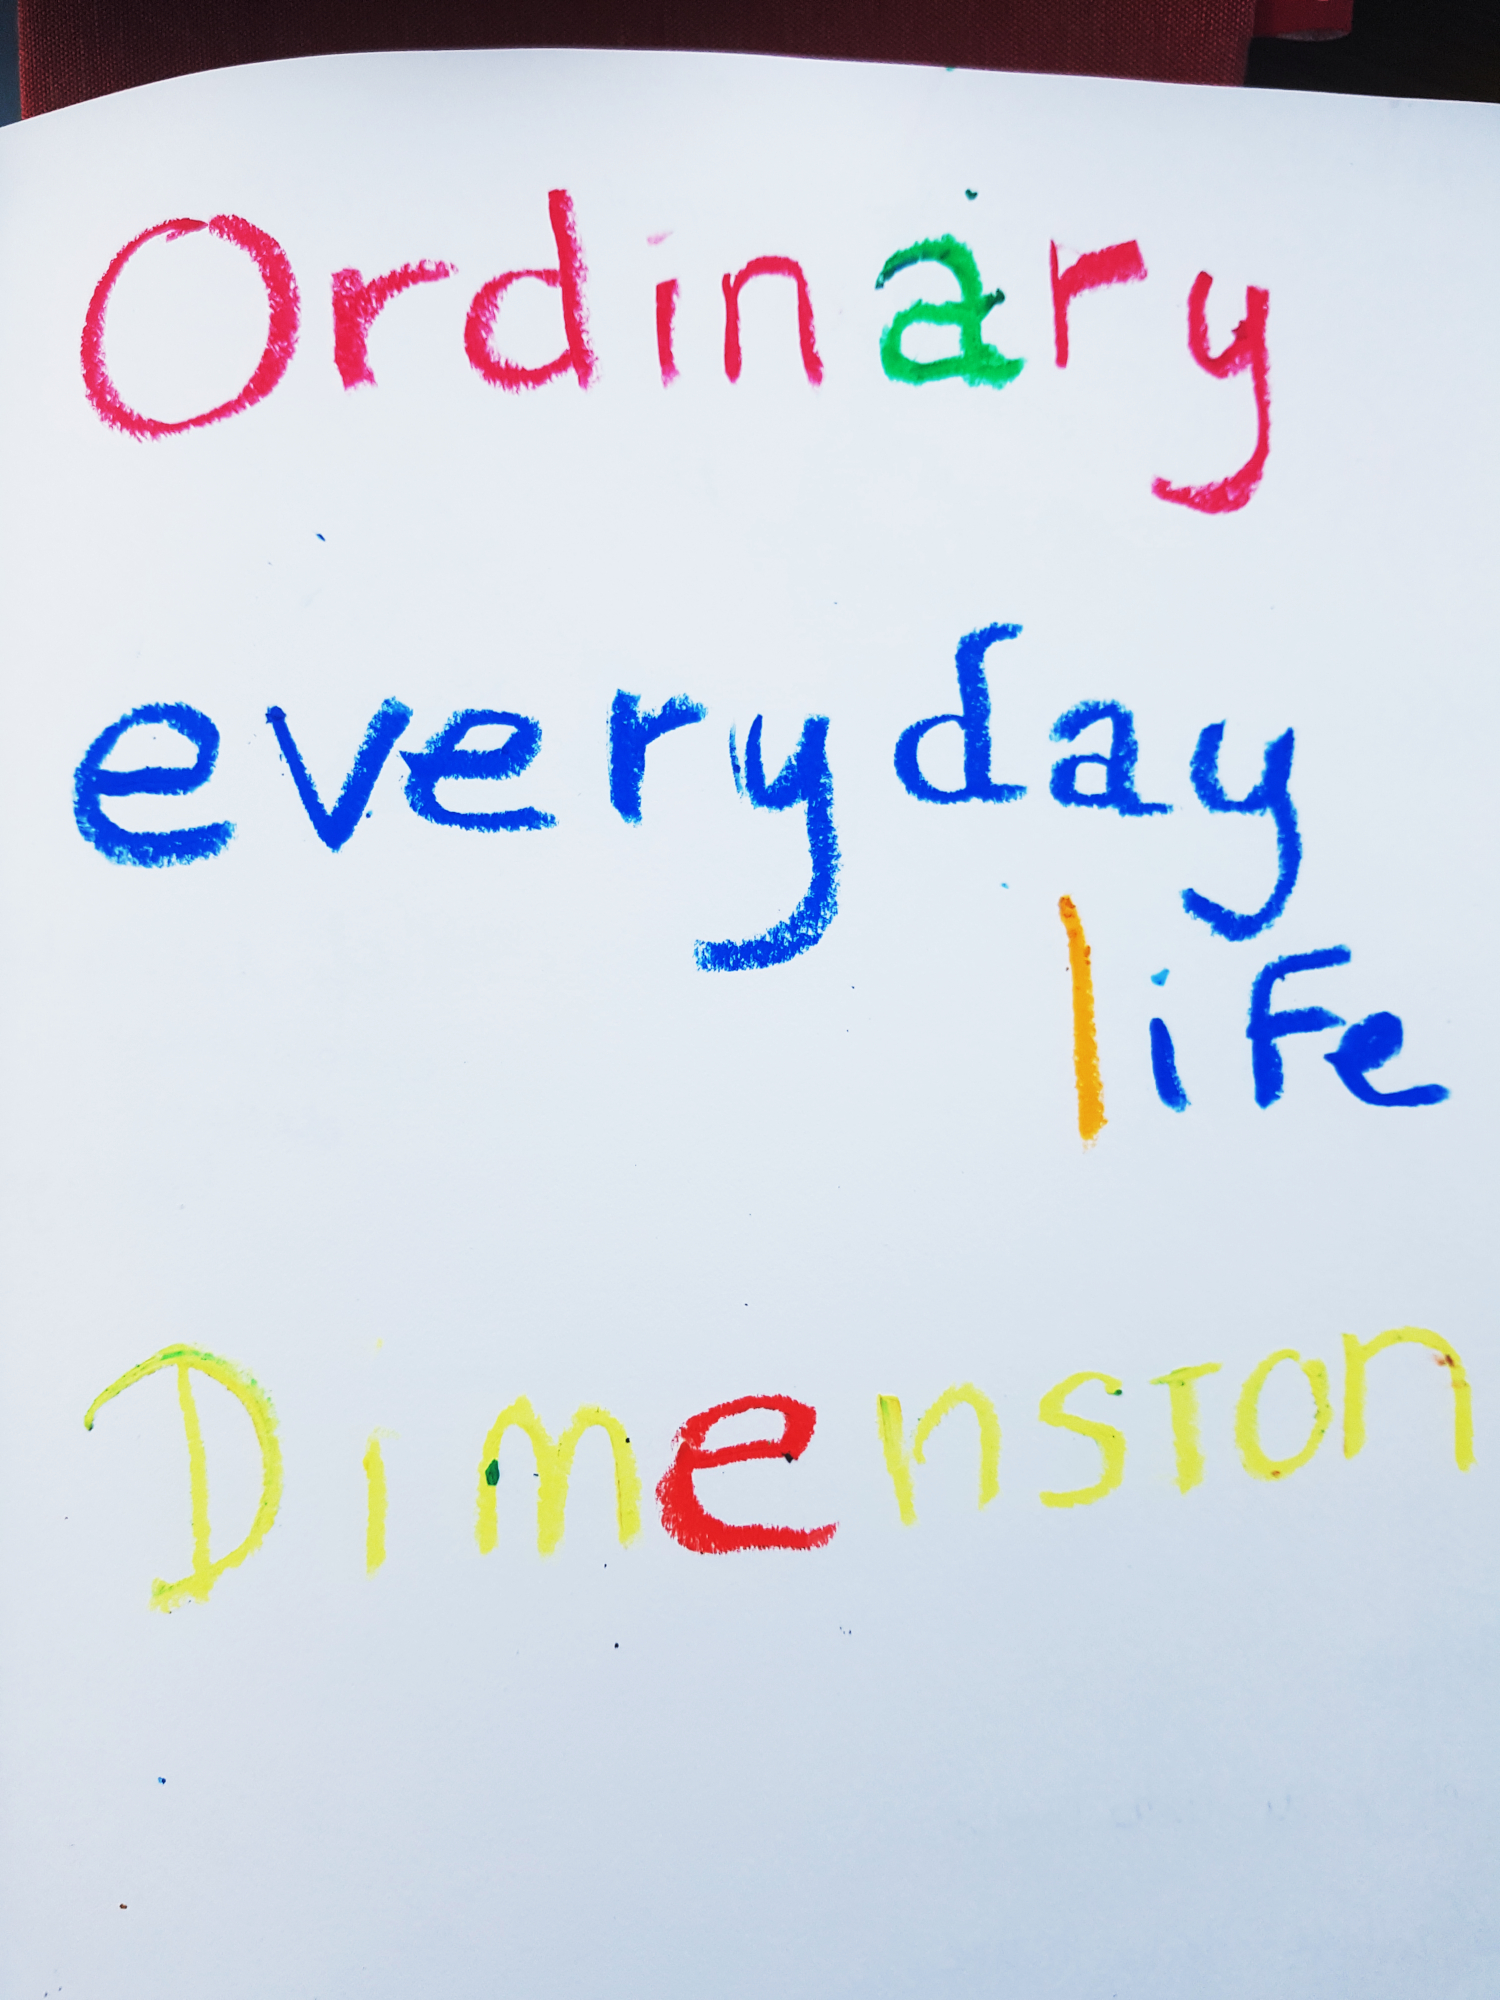 Ordinary
everyday
life
Dimension